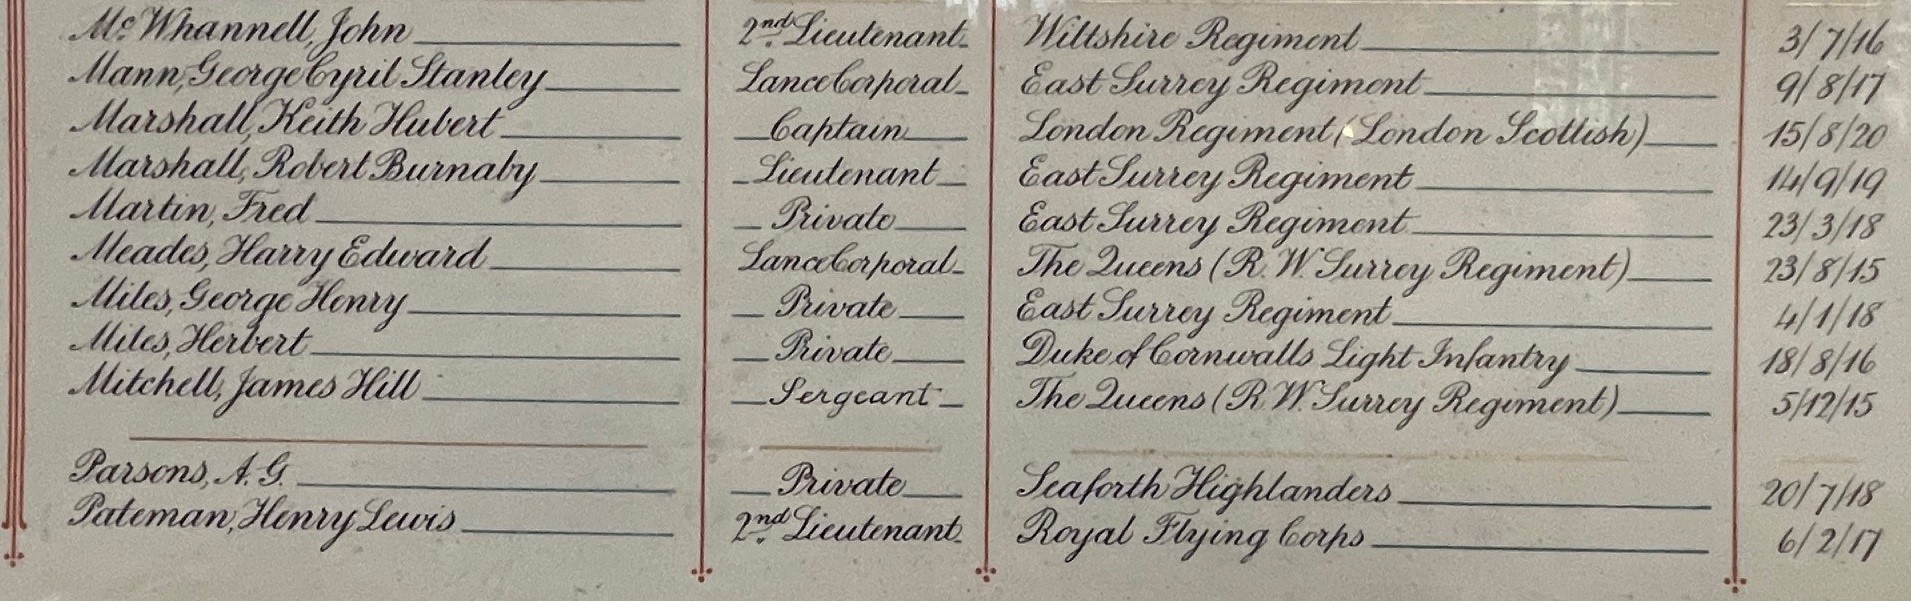 McWhannell, John 2nd Lieutenant Wiltshire Regiment 3/7/16
Mann, George Cyril Stanley Lance Corporal East Surrey Regiment 9/8/17
Marshall, Keith Hubert Captain London Regiment (London Scottish) 15/8/20
Marshall, Robert Burnaby Lieutenant East Surrey Regiment 14/9/19
Martin, Fred Private East Surrey Regiment 23/3/18
Meades, Harry Edward Lance Corporal The Queens (R.W. Surrey Regiment) 23/8/15
Miles, George Henry Private East Surrey Regiment 4/1/18
Miles, Herbert Private Duke of Cornwalls Light Infantry 18/8/16
Mitchell, James Hill Sergeant The Queens (R.W. Surrey Regiment) 5/12/15
Parsons, A.G. Private Seaforth Highlanders 20/7/18
Pateman, Henry Lewis 2nd Lieutenant Royal Flying Corps 6/2/17